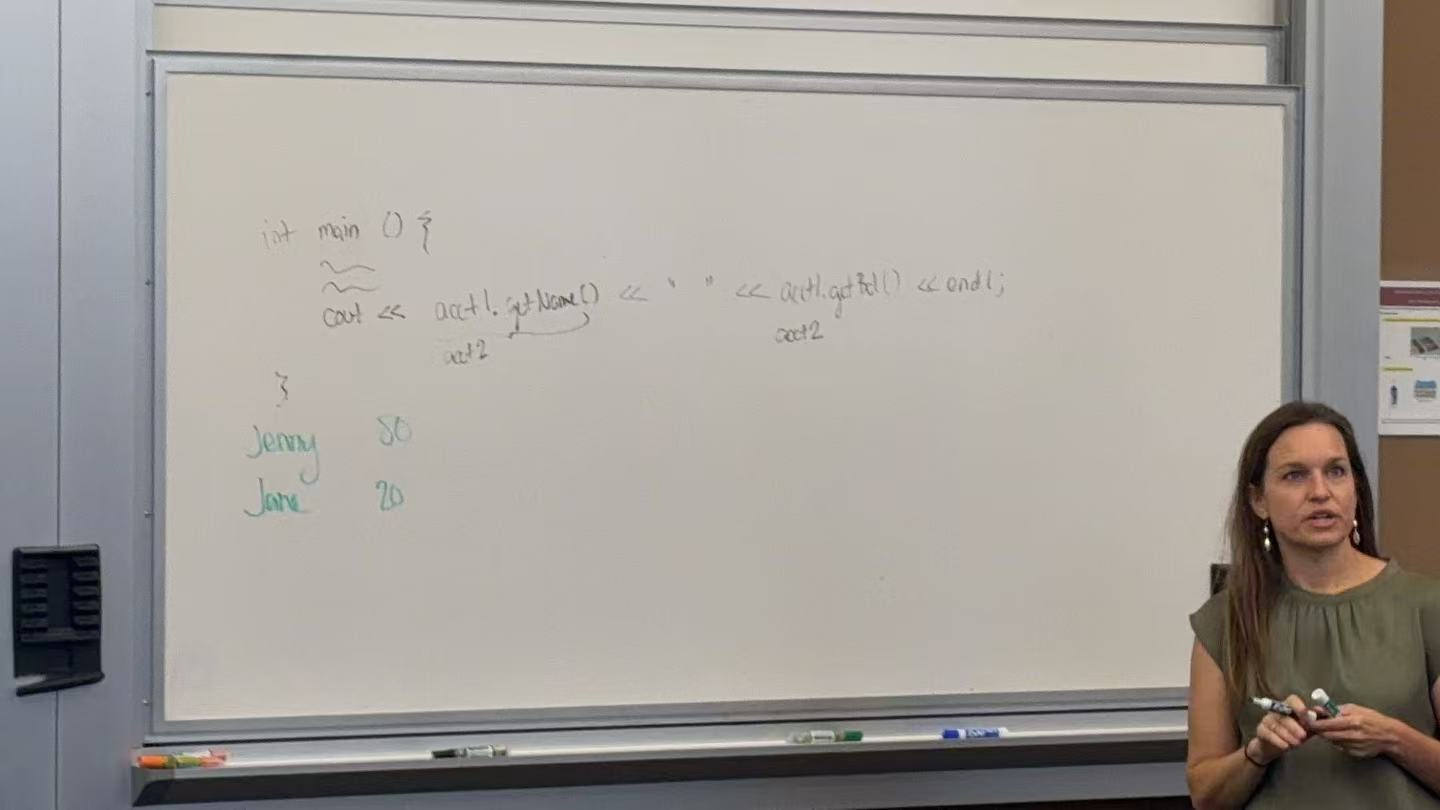 int main () {
cout << acct1.getName() << " " << acct1.getBal() << endl;
acct2 acct2
}
Jenny 80
Jane 20